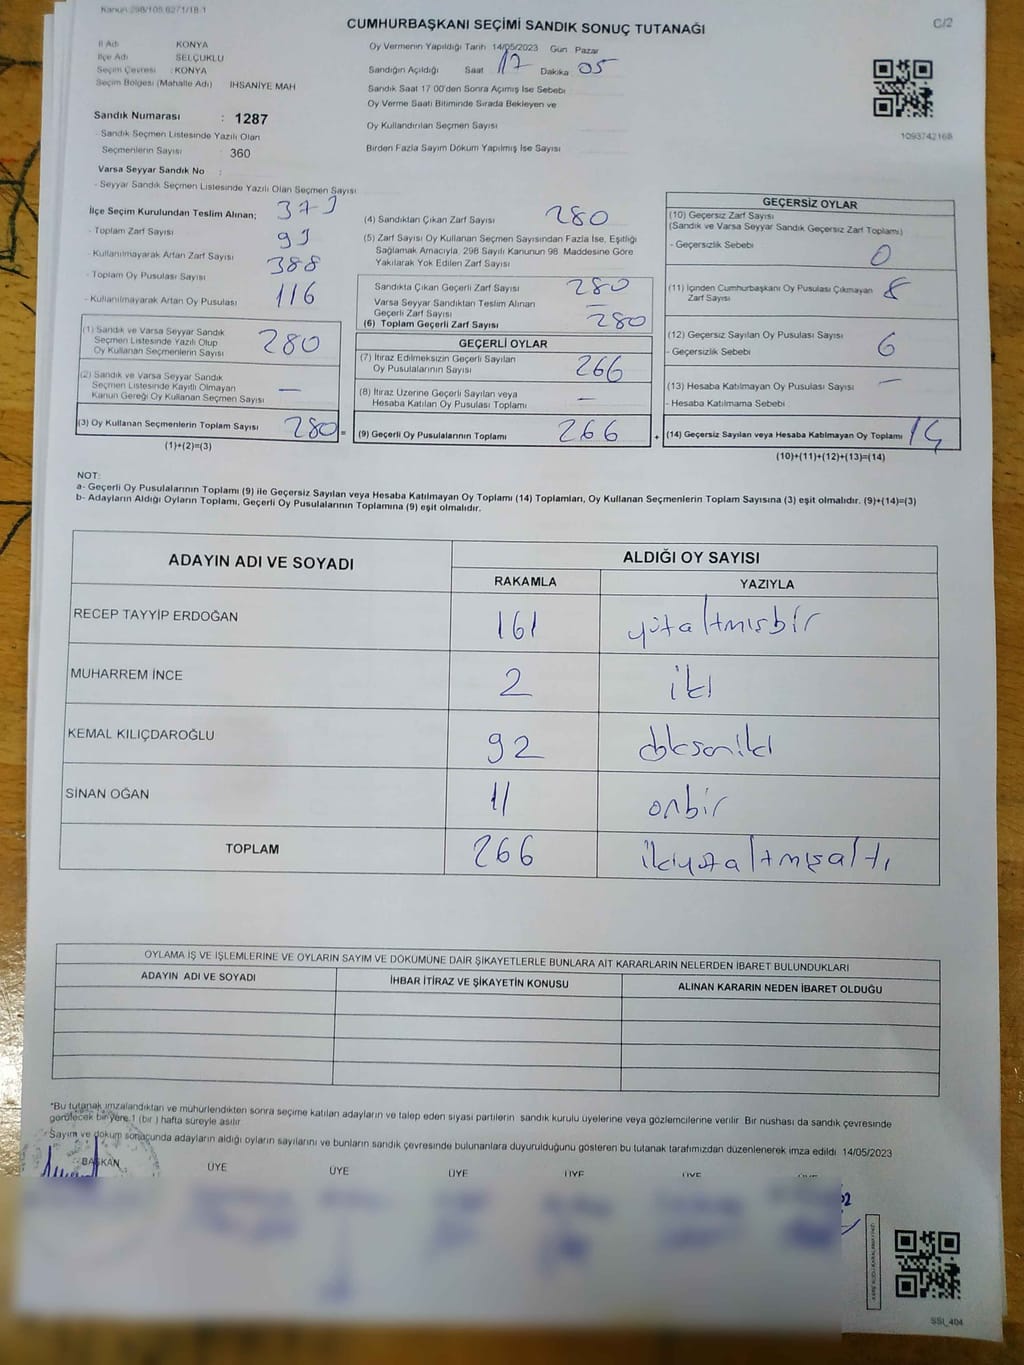 Kanun 298/105,6271/18-1
CUMHURBAŞKANI SEÇİMİ SANDIK SONUÇ TUTANAĞI
C/2
İl Adı KONYA
İlçe Adı SELÇUKLU
Seçim Çevresi : KONYA
Seçim Bölgesi (Mahalle Adı) IHSANİYE MAH
Oy Vermenin Yapıldığı Tarih 14/05/2023 Gün Pazar
Sandığın Açıldığı Saat 17 Dakika 05
Sandık Saat 17 00'den Sonra Açımış Ise Sebebi
Oy Verme Saati Bitiminde Sırada Bekleyen ve
Oy Kullandırılan Seçmen Sayısı
Birden Fazla Sayım Döküm Yapılmış İse Sayısı
1093742168
Sandık Numarası : 1287
- Sandık Seçmen Listesinde Yazılı Olan
Seçmenlerin Sayısı : 360
Varsa Seyyar Sandık No :
- Seyyar Sandık Seçmen Listesinde Yazılı Olan Seçmen Sayısı
İlçe Seçim Kurulundan Teslim Alınan;
- Toplam Zarf Sayısı
- Kullanılmayarak Artan Zarf Sayısı
- Toplam Oy Pusulası Sayısı 388
- Kullanılmayarak Artan Oy Pusulası 116
(1) Sandık ve Varsa Seyyar Sandık
Seçmen Listesinde Yazılı Olup
Oy Kullanan Seçmenlerin Sayısı 280
(2) Sandık ve Varsa Seyyar Sandık
Seçmen Listesinde Kayıtlı Olmayan
Kanun Gereği Oy Kullanan Seçmen Sayısı —
(3) Oy Kullanan Seçmenlerin Toplam Sayısı 280
(1)+(2)=(3)
(4) Sandıktan Çıkan Zarf Sayısı 280
(5) Zarf Sayısı Oy Kullanan Seçmen Sayısından Fazla İse, Eşitliği
Sağlamak Amacıyla, 298 Sayılı Kanunun 98 Maddesine Göre
Yakılarak Yok Edilen Zarf Sayısı
Sandıkta Çıkan Geçerli Zarf Sayısı 280
Varsa Seyyar Sandıktan Teslim Alınan
Geçerli Zarf Sayısı —
(6) Toplam Geçerli Zarf Sayısı 280
GEÇERLİ OYLAR
(7) İtiraz Edilmeksizin Geçerli Sayılan
Oy Pusulalarının Sayısı 266
(8) İtiraz Üzerine Geçerli Sayılan veya
Hesaba Katılan Oy Pusulası Toplamı —
= (9) Geçerli Oy Pusulalarının Toplamı 266
GEÇERSİZ OYLAR
(10) Geçersiz Zarf Sayısı
(Sandık ve Varsa Seyyar Sandık Geçersiz Zarf Toplamı)
- Geçersizlik Sebebi 0
(11) İçinden Cumhurbaşkanı Oy Pusulası Çıkmayan
Zarf Sayısı 8
(12) Geçersiz Sayılan Oy Pusulası Sayısı
- Geçersizlik Sebebi 6
(13) Hesaba Katılmayan Oy Pusulası Sayısı —
- Hesaba Katılmama Sebebi
+ (14) Geçersiz Sayılan veya Hesaba Katılmayan Oy Toplamı 14
(10)+(11)+(12)+(13)=(14)
NOT:
a- Geçerli Oy Pusulalarının Toplamı (9) ile Geçersiz Sayılan veya Hesaba Katılmayan Oy Toplamı (14) Toplamları, Oy Kullanan Seçmenlerin Toplam Sayısına (3) eşit olmalıdır. (9)+(14)=(3)
b- Adayların Aldığı Oyların Toplamı, Geçerli Oy Pusulalarının Toplamına (9) eşit olmalıdır.
ADAYIN ADI VE SOYADI ALDIĞI OY SAYISI
RAKAMLA YAZIYLA
RECEP TAYYİP ERDOĞAN 161 yüzaltmışbir
MUHARREM İNCE 2 iki
KEMAL KILIÇDAROĞLU 92 doksaniki
SİNAN OĞAN 11 onbir
TOPLAM 266 ikiyüzaltmışaltı
OYLAMA İŞ VE İŞLEMLERİNE VE OYLARIN SAYIM VE DÖKÜMÜNE DAİR ŞİKAYETLERLE BUNLARA AİT KARARLARIN NELERDEN İBARET BULUNDUKLARI
ADAYIN ADI VE SOYADI İHBAR İTİRAZ VE ŞİKAYETİN KONUSU ALINAN KARARIN NEDEN İBARET OLDUĞU
*Bu tutanak imzalandıktan ve mühürlendikten sonra seçime katılan adayların ve talep eden siyasi partilerin sandık kurulu üyelerine veya gözlemcilerine verilir Bir nüshası da sandık çevresinde
görülecek bir yere 1 (bir ) hafta süreyle asılır
Sayım ve döküm sonuçunda adayların aldığı oyların sayılarını ve bunların sandık çevresinde bulunanlara duyurulduğunu gösteren bu tutanak tarafımızdan düzenlenerek imza edildi 14/05/2023
BAŞKAN ÜYE ÜYE ÜYE ÜYE ÜYE ÜYE
SSI_404